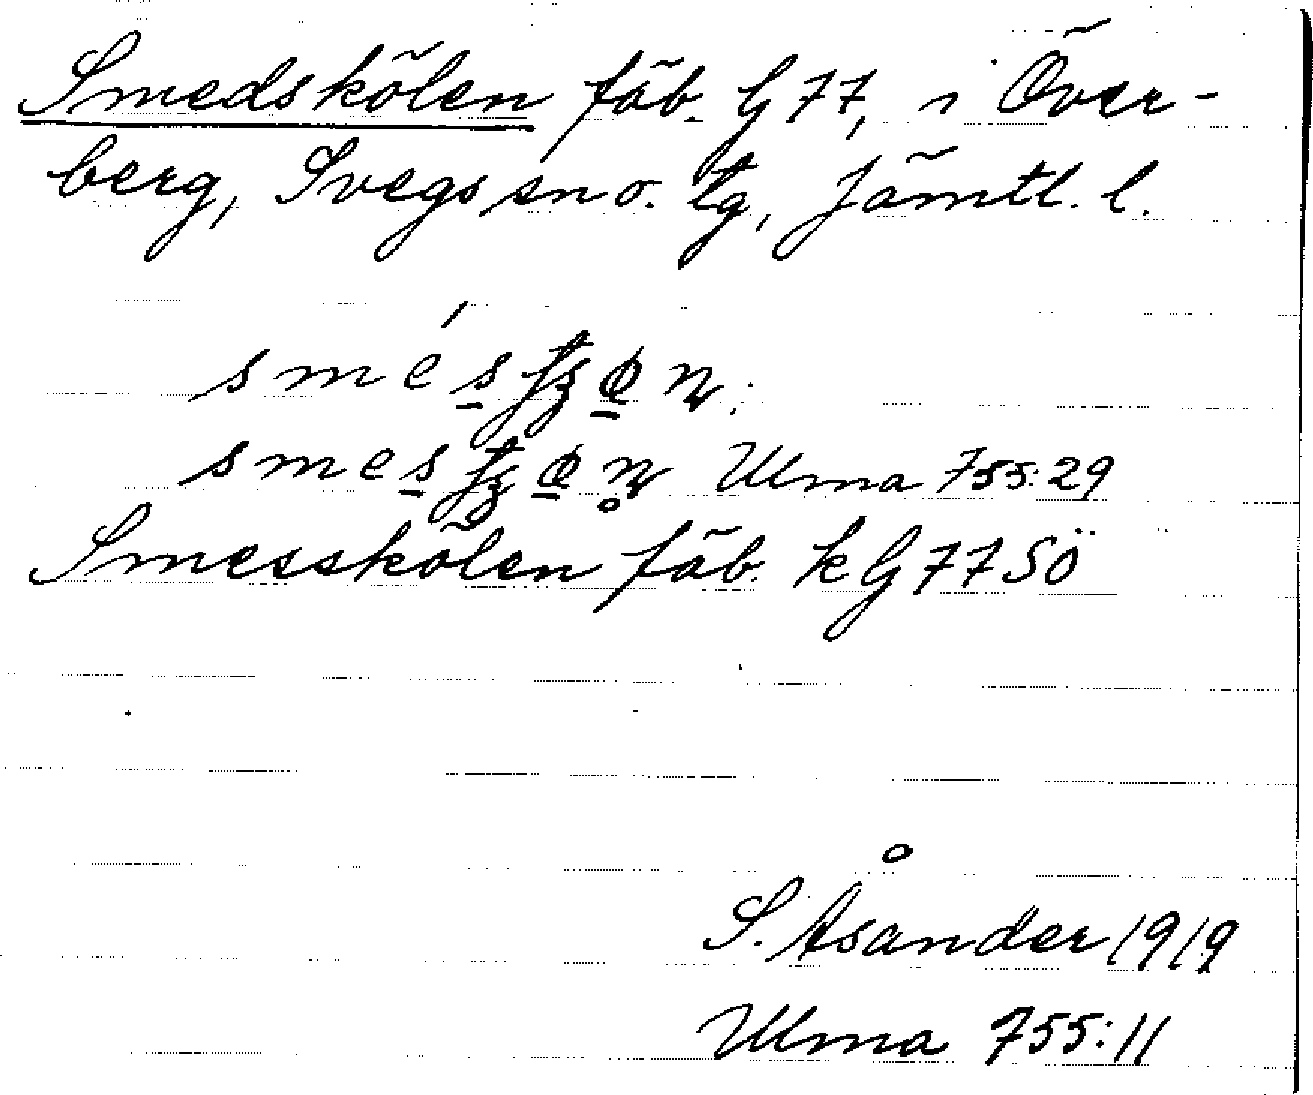 Smedskölen fäb. G 77, i Över-
berg, Svegs sn o. tg, Jämtl. l.
Ulma 755:29
Smesskölen fäb. k G 77 SÖ
S. Åsander 1919
Ulma 755:11